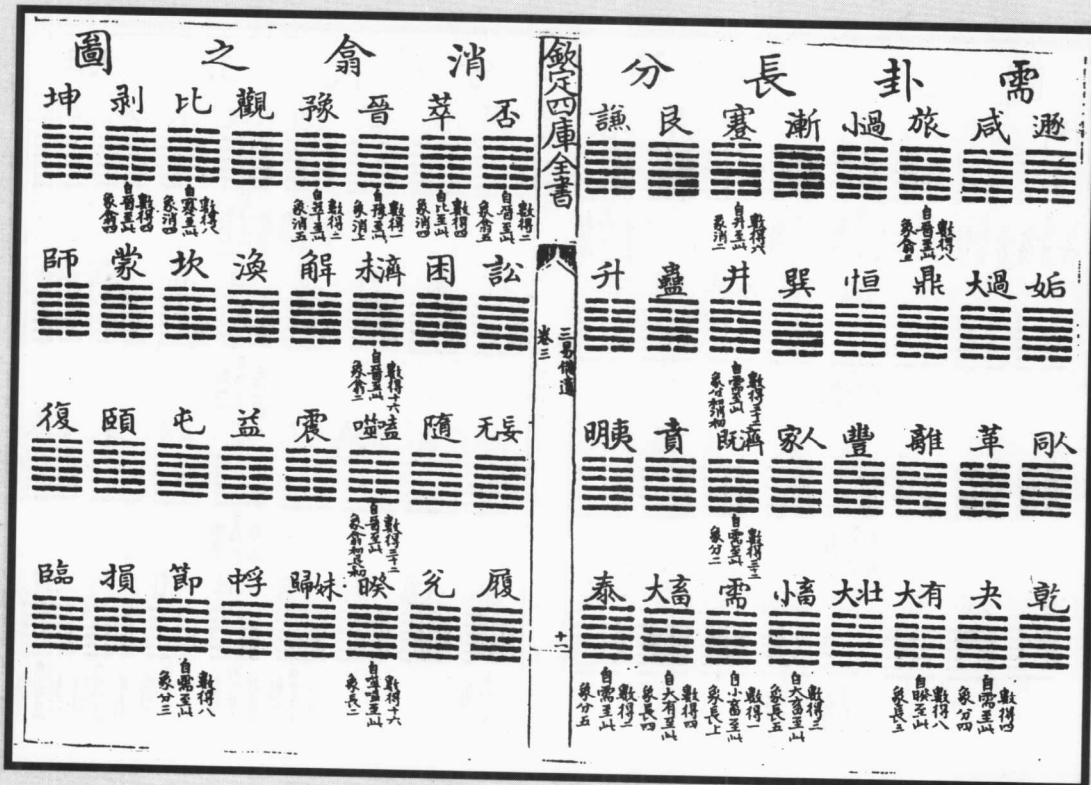 需卦長分
遯 咸 旅 小過 漸 蹇 艮 謙
數得八
自晉至此
數得
自井至此
象消二
姤 大過 鼎 恒 巽 井 蠱 升
數得三十二
自需至此
象分初消初
同人 革 離 豐 家人 既濟 賁 明夷
自需至此
象分二
乾 夬 大有 大壯 小畜 需 大畜 泰
數得四
自需至此
象分四
數得八
自睽至此
象長三
數得二
自大畜至此
象長五
數得一
自小畜至此
象長上
數得四
自大有至此
象長四
數得二
自需至此
象分五
欽定四庫全書
三易備遺
卷三
十一
消翕之圖
否 萃 晉 豫 觀 比 剥 坤
數得二
自晉至此
象翕五
數得四
自比至此
象消四
數得一
自豫至此
象消上
數得二
自萃至此
象消五
數得八
自蹇至此
數得四
自晉至此
象翕四
訟 困 未濟 解 渙 坎 蒙 師
數得十六
自晉至此
象翕二
无妄 隨 噬嗑 震 益 屯 頤 復
數得三十二
自晉至此
象翕初長初
履 兊 睽 歸妹 中孚 節 損 臨
數得十六
自噬嗑至此
象長二
數得八
自需至此
象分三